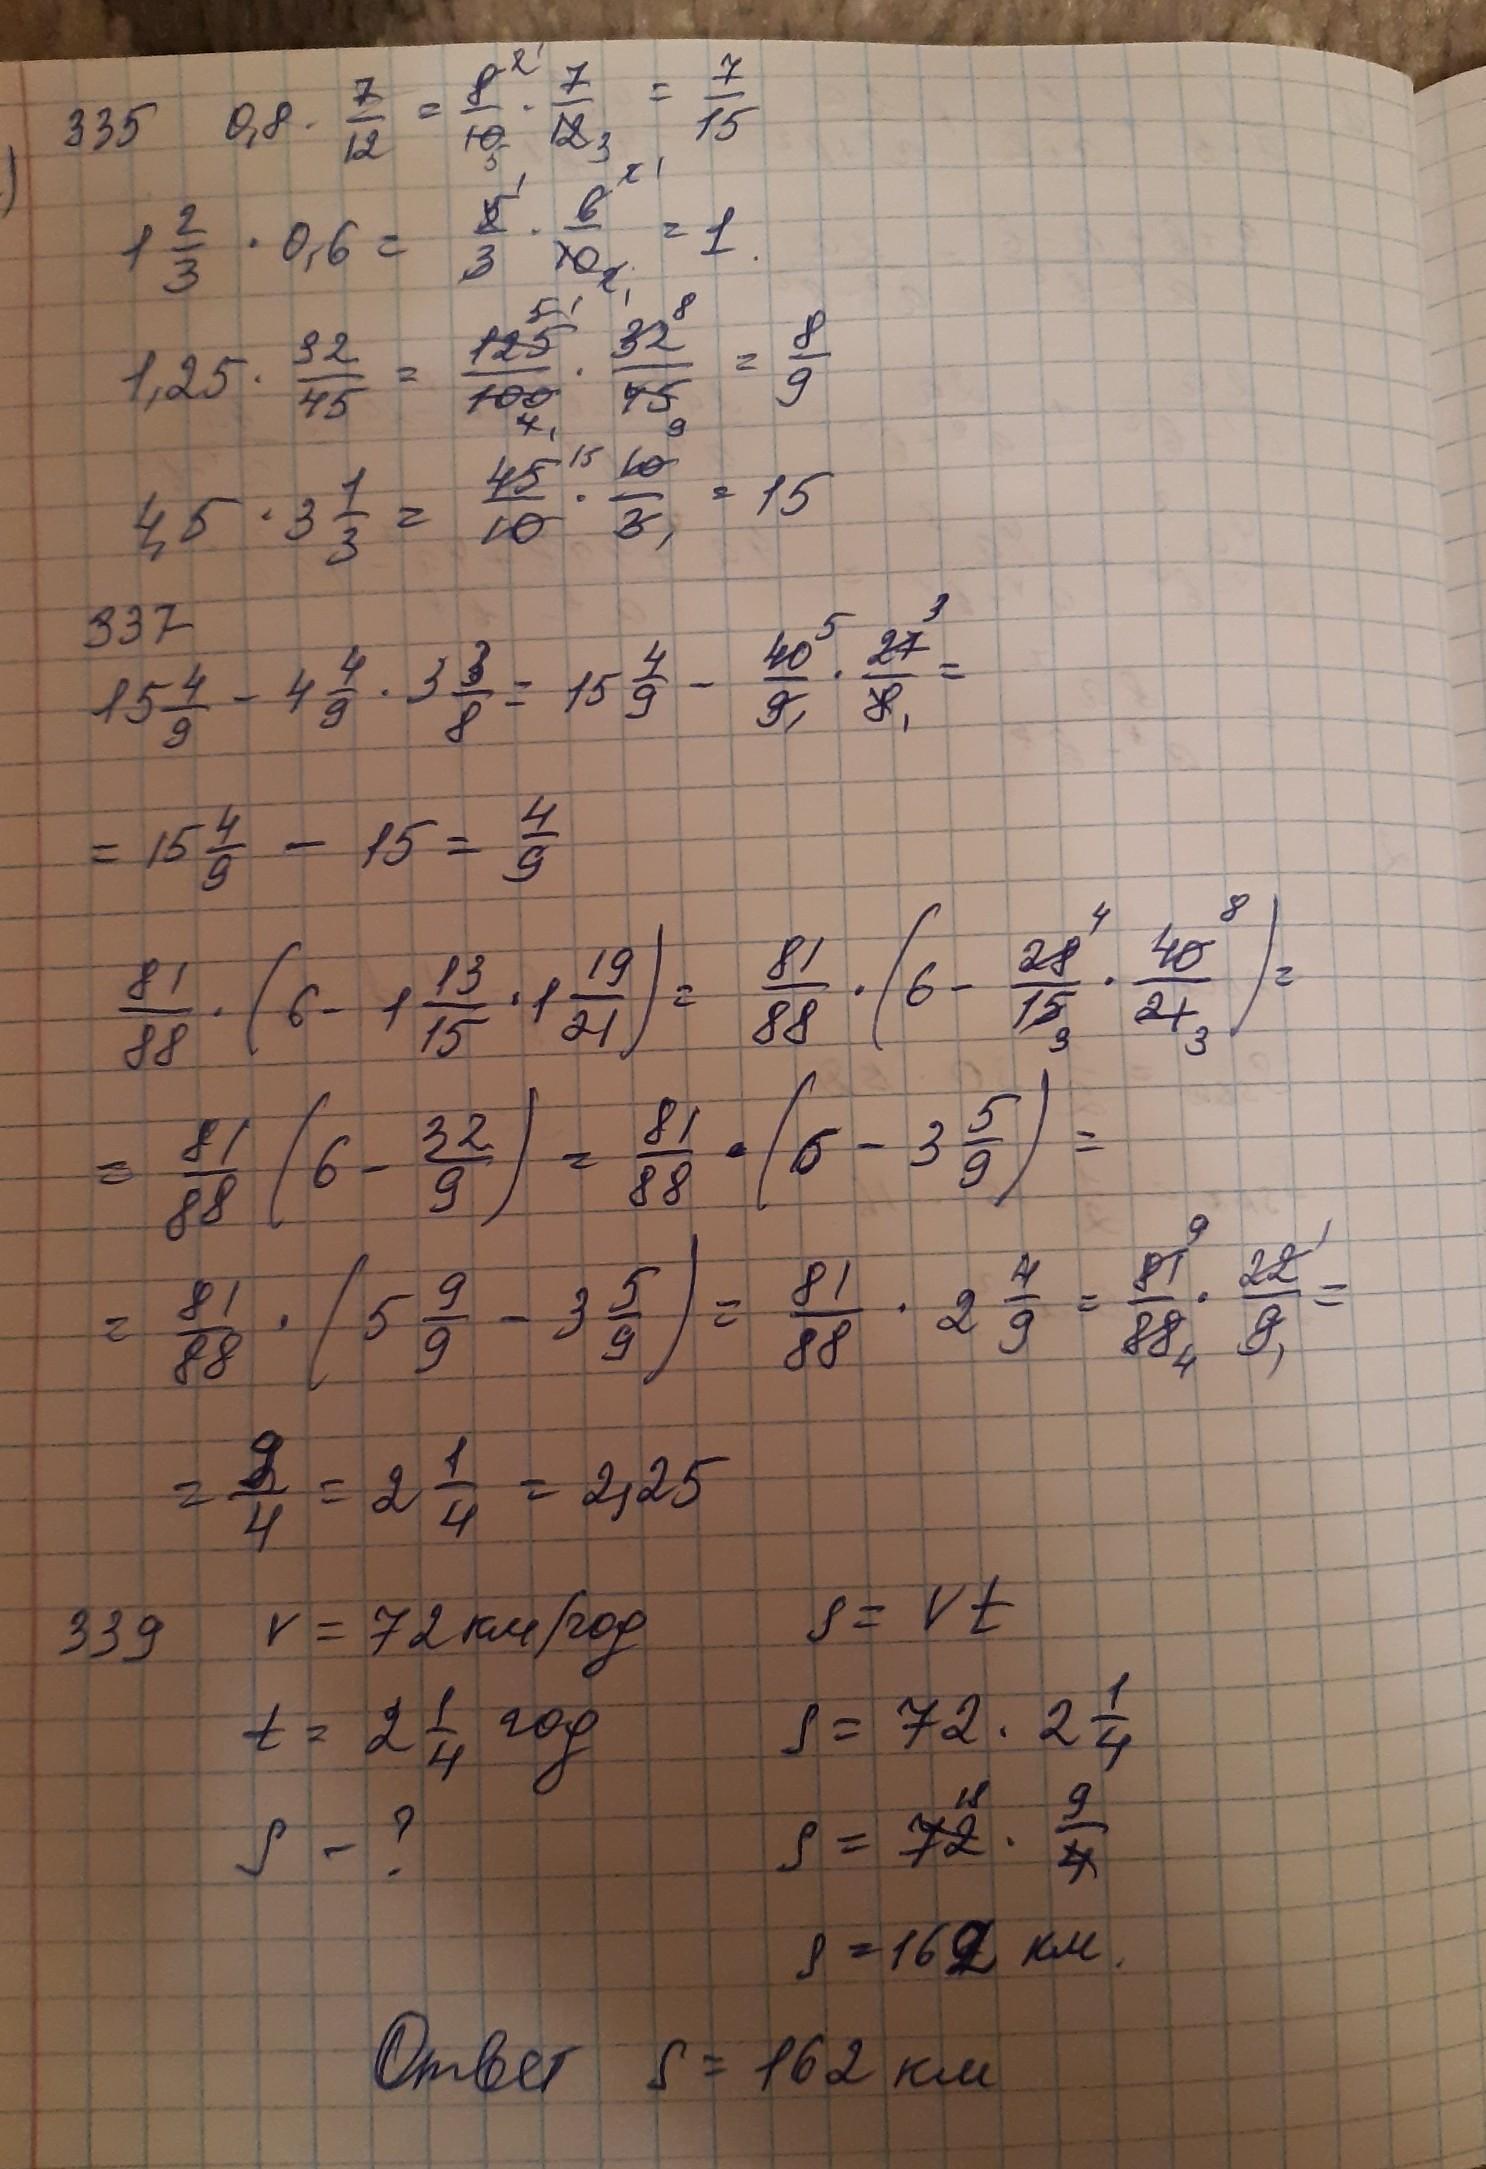 335 0,8 · 7/12 = 8/10 · 7/12 = 7/15
1 2/3 · 0,6 = 5/3 · 6/10 = 1.
1,25 · 32/45 = 125/100 · 32/45 = 8/9
4,5 · 3 1/3 = 45/10 · 10/3 = 15
337
15 4/9 - 4 4/9 · 3 3/8 = 15 4/9 - 40/9 · 27/8 =
= 15 4/9 - 15 = 4/9
81/88 · (6 - 1 13/15 · 1 19/21) = 81/88 · (6 - 28/15 · 40/21) =
= 81/88 (6 - 32/9) = 81/88 · (6 - 3 5/9) =
= 81/88 · (5 9/9 - 3 5/9) = 81/88 · 2 4/9 = 81/88 · 22/9 =
= 9/4 = 2 1/4 = 2,25
339 V = 72 км/год S = Vt
t = 2 1/4 год S = 72 · 2 1/4
S - ? S = 72 · 9/4
S = 162 км.
Ответ S = 162 км